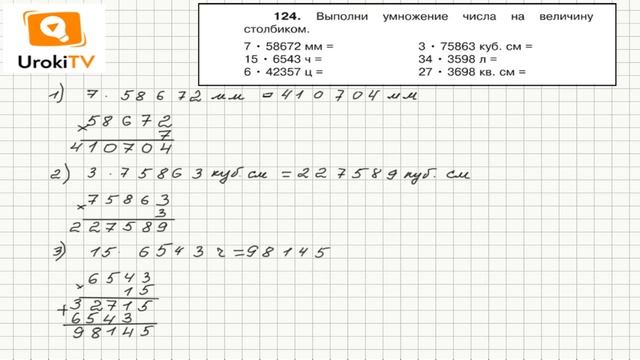 UrokiTV
124. Выполни умножение числа на величину
столбиком.
7 • 58672 мм = 3 • 75863 куб. см =
15 • 6543 ч = 34 • 3598 л =
6 • 42357 ц = 27 • 3698 кв. см =
1) 7 · 58672 мм = 410704 мм
× 58672
7
410704
2) 3 · 75863 куб. см = 227589 куб. см
× 75863
3
227589
3) 15 · 6543 ч = 98145
× 6543
15
+ 32715
6543
98145